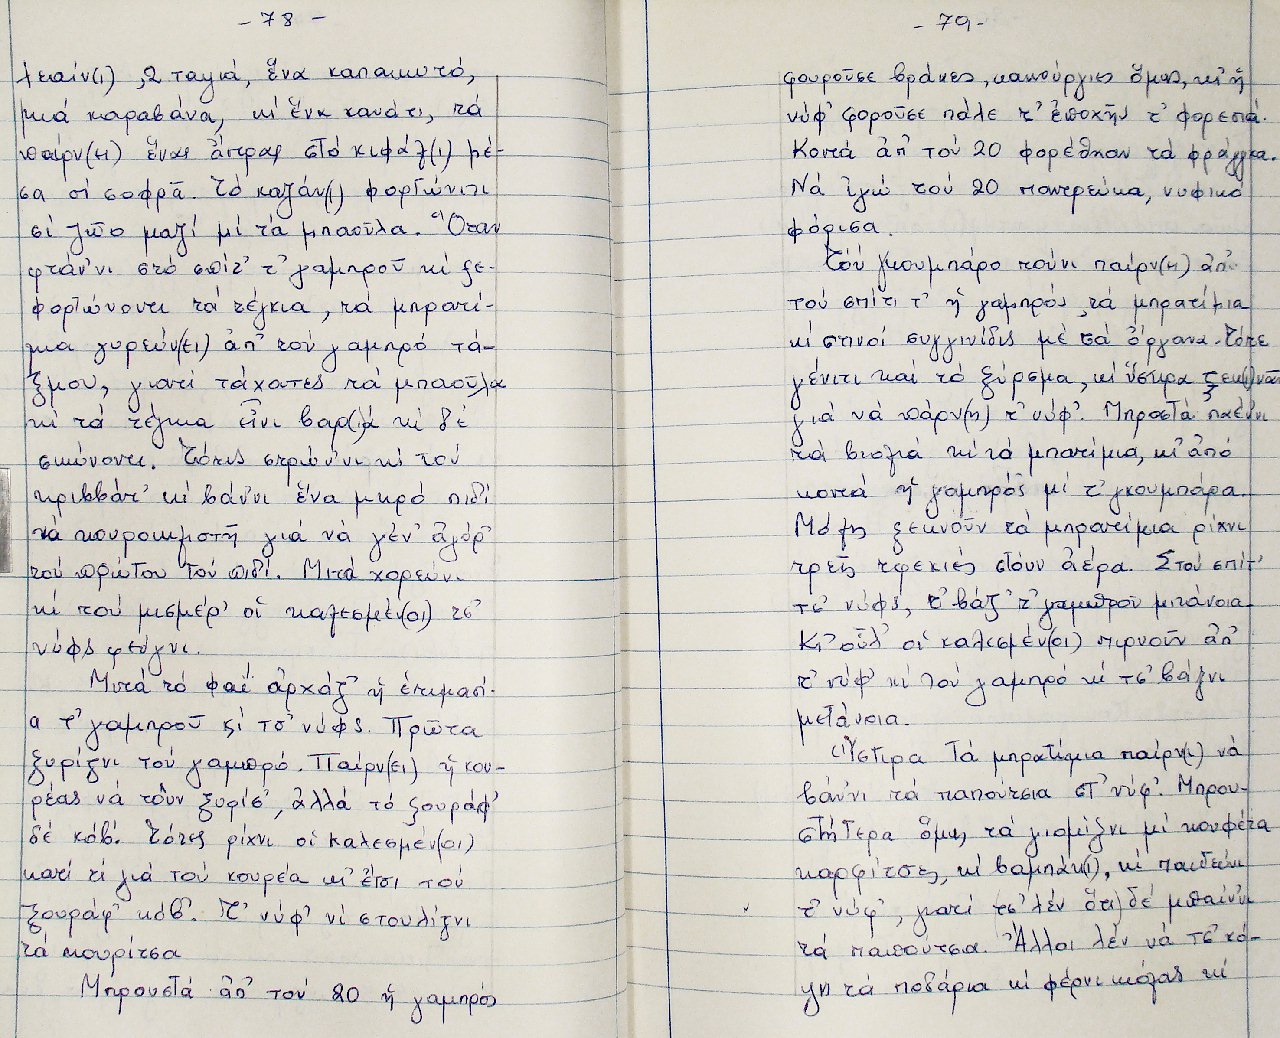 - 78 -
λεαίν(ι), 2 ταψιά, ἕνα καπακωτό,
μιά καραβάνα, κι ἕνα κανάτι, τά
παίρν(ει) ἕνας ἄντρας στό κιφάλ(ι) μέ-
σα σί σοφρᾶ. Τό καζάν(ι) φορτώνιτι
σί ζῶο μαζί μί τά μπαοῦλα. Ὅταν
φτάν'νι στό σπίτ' τ' γαμπροῦ κί ξε-
φορτώνοντι τά τέγκια, τά μπρατί-
μια γυρεύν(ει) ἀπ' τόν γαμπρό τά-
ξμου, γιατί τάχατες τά μπαοῦλα
κί τά τέγκια εἶνι βαρ(ι)ά κί δέ
σκώνοντι. Τότις στρών'νι κί τού
κριββάτ' κί βάν'νι ἕνα μκρό πιδί
νά κουροκλιστῆ γιά νά γέν' ἀγόρ'
τού πρῶτου τού πιδί. Μιτά χορεύνι
κί τού μισμέρ' οἱ καλεσμέν(οι) τσ'
νύφς φεύγνι.
Μιτά τό φαΐ ἀρχάζ' ἡ ἑτιμασί-
α τ' γαμπροῦ κί τσ' νύφς. Πρῶτα
ξυρίζνι τόν γαμπρό. Παίρν(ει) ἡ κου-
ρέας νά τοὺν ξυρίσ', ἀλλά τό ξουράφ'
δέ κόβ'. Τότες ρίχνι οἱ καλεσμέν(οι)
κατί τί γιά τού κουρέα κι ἔτσι τού
ξουράφ' κόβ'. Τ' νύφ' νί στουλίζνι
τά κουρίτσα
Μπρουστά ἀπ' τού 20 ἡ γαμπρός
- 79 -
φουροῦσε βράκες, καινούργιες ὅμως, κι ἡ
νύφ' φοροῦσε πάλε τ' ἐποχῆς τ' φορεσιά.
Κοντά ἀπ' τού 20 φορέθκαν τά φράγκα.
Νά ἰγώ τού 20 παντρεύκα, νυφικό
φόρισα.
Τόν γκουμπάρο τούνι παίρν(ει) ἀπ'
τού σπίτι τ' ἡ γαμπρός, τά μπρατίμια
κί στινοί συγγινίδις μέ τά ὄργανα. Τότε
γένιτι καί τό ξύρσμα, κί ὕστιρα ξεκ(ι)νᾶν
γιά νά πάρν(η) τ' νύφ'. Μπροστά παέν'νι
τά βιολιά κί τά μπρατίμια, κι ἀπό
κοντά ἡ γαμπρός μί τ' γκουμπάρα.
Μόλις ξεκνοῦν τά μπρατίμια ρίχνι
τρεῖς τφεκιές στόν ἀέρα. Στού σπίτ'
τσ' νύφς, τ' βάζ' τ' γαμπροῦ μιτάνοια
Κι οὕλ' οἱ καλεσμέν(οι) πιρνοῦν ἀπ'
τ' νύφ' κί τόν γαμπρό κί τσ' βάζνι
μετάνοια.
Ὕστιρα τά μπρατίμια παίρν(ι) νά
βάν'νι τά παπούτσια στ' νύφ'. Μπρου-
στήτερα ὅμως τά γιομίζνι μί κουφέτα
καρφίτσες, κί βαμπάκ(ι), κί παιδεύνι
τ' νύφ', γιατί τσ' λέν ὅτ(ι) δέ μπαίν'νι
τά παπούτσια. Ἄλλοι λέν νά τσ' κό-
ψη τά ποδάρια κί φέρνι κί